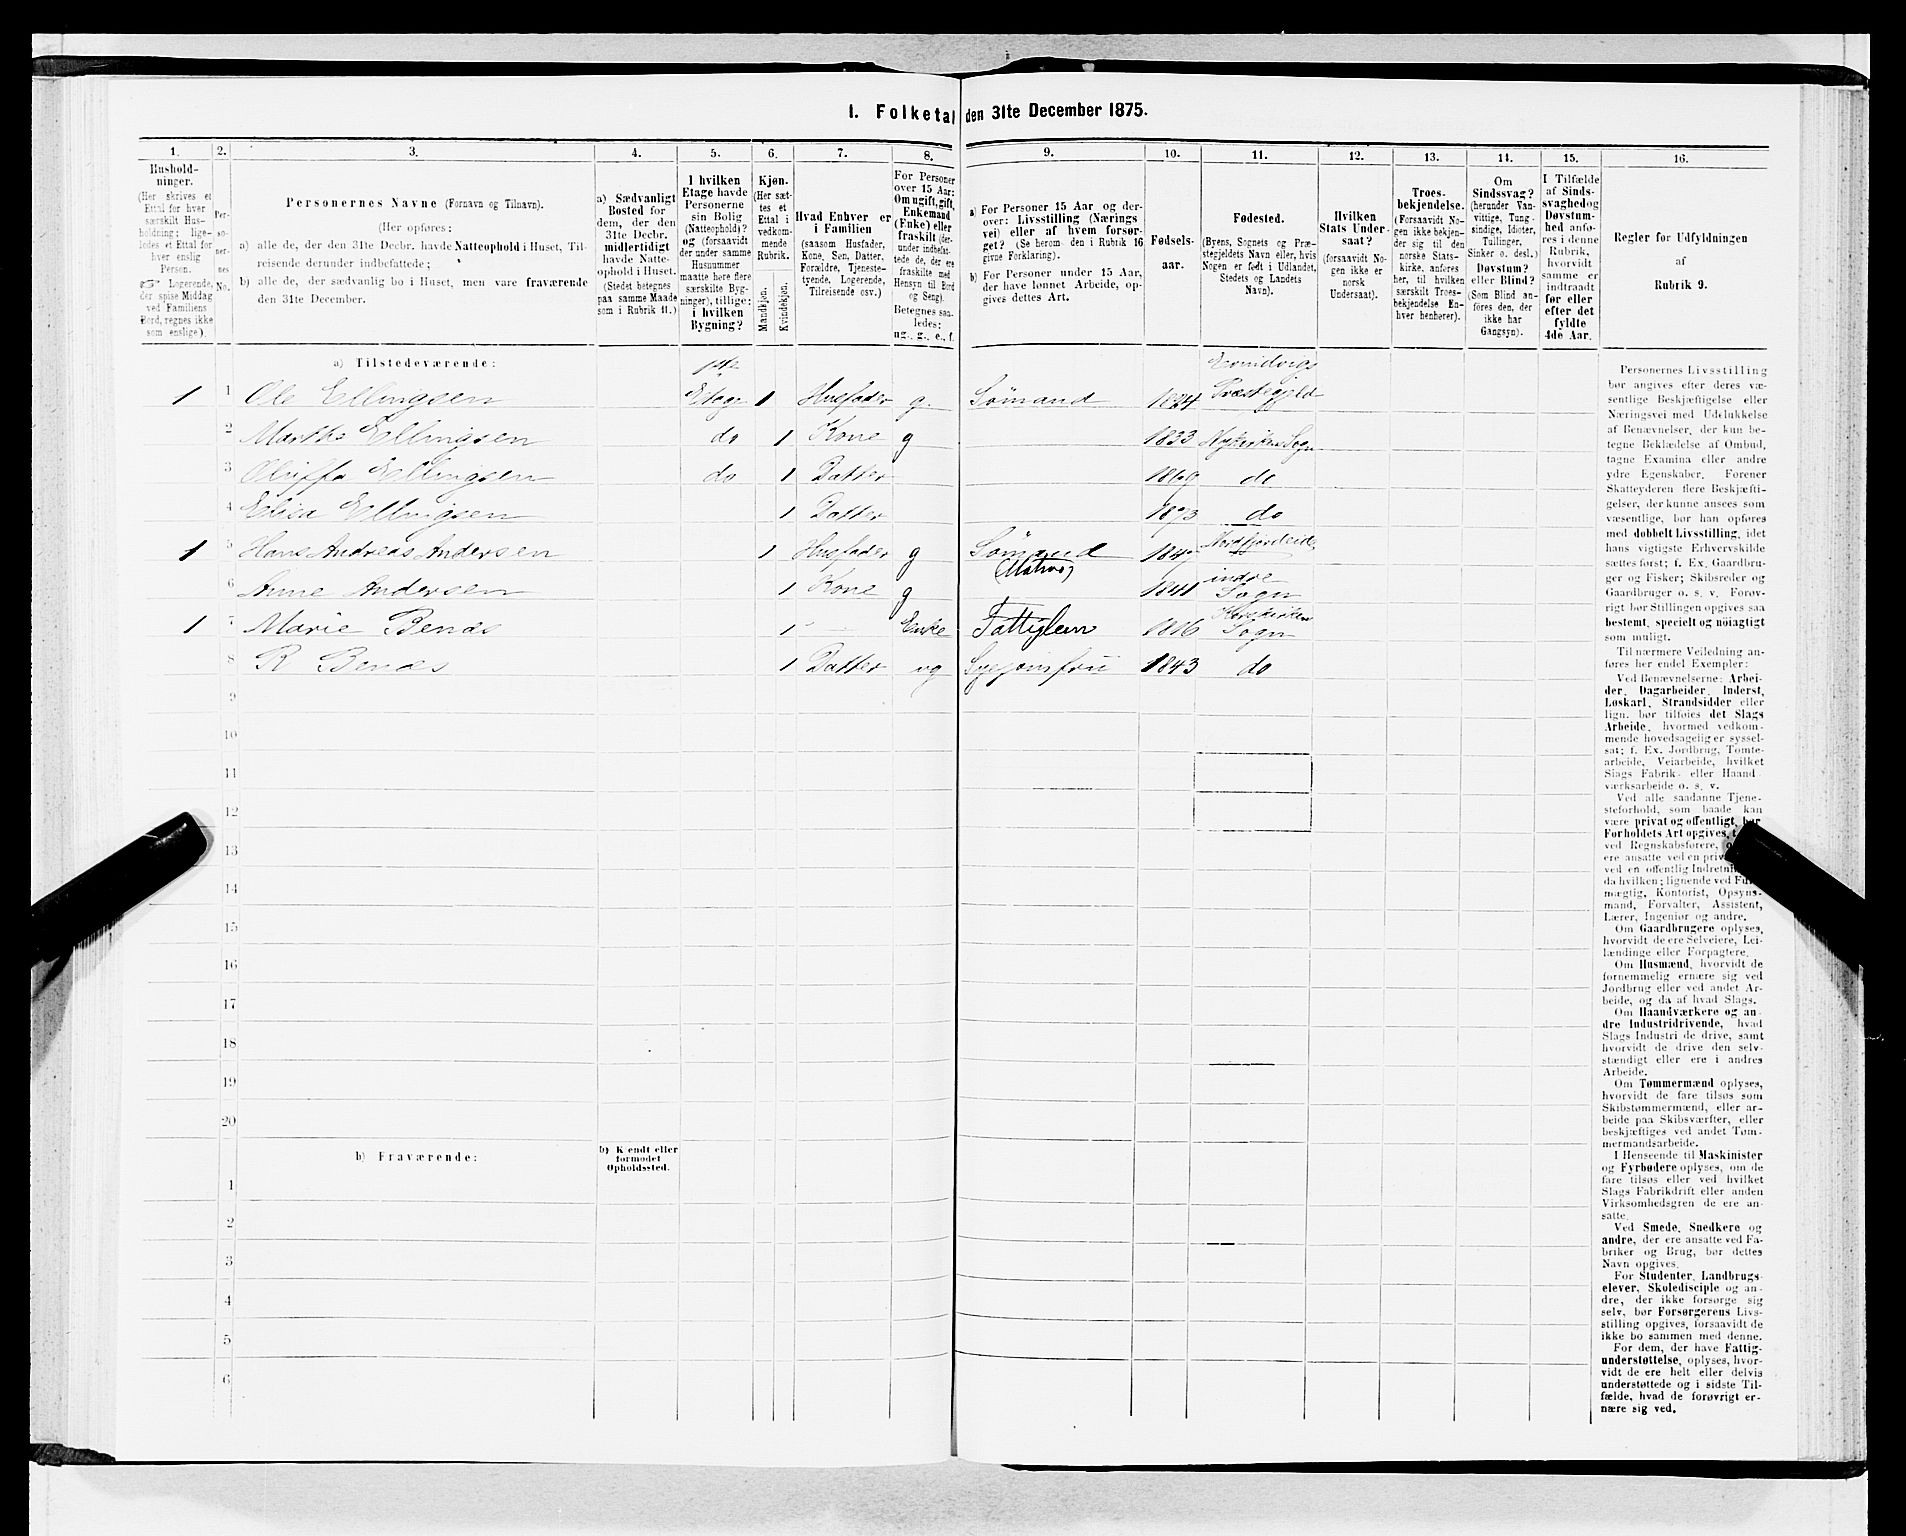 1. Folketal den 31te December 1875.
1.
Hushold-
ninger.
(Her skrives et
Ettal for hver
særskilt Hus-
holdning; lige-
ledes et Ettal for
hver enslig
Person.
☞ Logerende,
der spise Middag
ved Familiens
Bord, regnes ikke
som enslige).
2.
Per-
so-
ner-
nes
No.
3.
Personernes Navne (Fornavn og Tilnavn).
(Her opføres:
a) alle de, der den 31te Decbr. havde Natteophold i Huset, Til-
reisende derunder indbefattede;
b) alle de, der sædvanlig bo i Huset, men vare fraværende
den 31te December.
4.
a) Sædvanligt
Bosted for
dem, der den
31te Decbr.
midlertidigt
havde Natte-
ophold i Huset.
(Stedet betegnes
paa samme Maade
som i Rubrik 11.)
5.
I hvilken
Etage havde
Personerne
sin Bolig
(Natteophold)?
og (forsaavidt
der under samme
Husnummer
maatte høre flere
særskilte Byg-
ninger), tillige:
i hvilken
Bygning?
6.
Kjøn.
(Her sæt-
tes et
Ettal i
vedkom-
mende
Rubrik.
Mandkjøn.
Kvindekjøn.
7.
Hvad Enhver er
i Familien
(saasom Husfader,
Kone, Søn, Datter,
Forældre, Tjeneste-
tyende, Logerende,
Tilreisende osv.)
8.
For Personer
over 15 Aar:
Om ugift, gift,
Enkemand
(Enke) eller
fraskilt (der-
under indbefat-
tede de, der ere
fraskilte med
Hensyn til Bord
og Seng).
Betegnes saa-
ledes:
ug., g., e., f.
9.
a) For Personer 15 Aar og der-
over: Livsstilling (Nærings
vei) eller af hvem forsør-
get? (Se herom den i Rubrik 16
givne Forklaring).
b) For Personer under 15 Aar,
der have lønnet Arbeide, op-
gives dettes Art.
10.
Fødsels-
aar.
11.
Fødested.
(Byens, Sognets og Præ-
stegjeldets Navn eller, hvis
Nogen er født i Udlandet,
Stedets og Landets
Navn).
12.
Hvilken
Stats Under-
saat?
(forsaavidt No-
gen ikke er
norsk
Undersaat).
13.
Troes-
bekjendelse.
(Forsaavidt No-
gen ikke bekjen-
der sig til den
norske Stats-
kirke, anføres
her, til hvilken
særskilt Troes-
bekjendelse En-
hver henhører).
14.
Om
Sindssvag?
(herunder Van-
vittige, Tung-
sindige, Idioter,
Tullinger,
Sinker o. desl.)
Døvstum?
eller Blind?
(Som Blind an-
føres den, der
ikke har
Gangsyn).
15.
I Tilfælde
af Sinds-
svaghed og
Døvstum-
hed anfø-
res i denne
Rubrik,
hvorvidt
samme er
indtraadt
før eller
efter det
fyldte
4de Aar.
16.
Regler for Udfyldningen
af
Rubrik 9.
a) Tilstedeværende:
1 1 Ole Ellingsen Etage 1 Husfader g. Sømand 1824 Evindvigs Præstegjeld
2 Marthe Ellingsen do 1 Kone g 1833 Nykirken Sogn
3 Oluffa Ellingsen do 1 Datter 1869 do
4 Elisa Ellingsen 1 Datter 1873 do
1 5 Hans Andreas Andersen 1 Husfader g Sømand (Matros) Nordfjordeid
6 Anne Andersen 1 Kone g 1841 indre Sogn
1 7 Marie Bendes 1 Enke Fattiglem 1816 Korskirken Sogn
8 R Bendes 1 Datter ug Syejomfru 1843 do
9
10
11
12
13
14
15
16
17
18
19
20
b) Fraværende:
b) Kjendt eller
formodet
Opholdssted.
1
2
3
4
5
6
Personernes Livsstilling
bør angives efter deres væ-
sentlige Beskjæftigelse eller
Næringsvei med Udelukkelse
af Benævnelser, der kun be-
tegne Beklædelse af Ombud,
tagne Examina eller andre
ydre Egenskaber. Forener
Skatteyderen flere Beskjæfti-
gelser, der kunne ansees som
væsentlige, bør han opføres
med dobbelt Livsstilling, idet
hans vigtigste Erhvervskilde
sættes først; f. Ex. Gaardbru-
ger og Fisker; Skibsreder og
Gaardbruger o. s. v. Forøv-
rigt bør Stillingen opgives saa
bestemt, specielt og nøiagtigt
som muligt.
Til nærmere Veiledning an-
føres her endel Exempler:
Ved Benævnelserne: Arbei-
der, Dagarbeider, Inderst,
Løskarl, Strandsidder eller
lign. bør tilføies det Slags
Arbeide, hvormed vedkom-
mende hovedsagelig er syssel-
sat; f. Ex. Jordbrug, Tomte-
arbeide, Veiarbeide, hvilket
Slags Fabrik- eller Haand-
værksarbeide o. s. v.
Ved alle saadanne Tjene-
steforhold, som baade kan
være privat og offentligt, bør
Forholdets Art opgives,
ved Regnskabsførere,
ere ansatte ved en
ved en offentlig
da hvilken; lignende ved Fuld-
mægtig, Kontorist, Opsyns-
mand, Forvalter, Assistent,
Lærer, Ingeniør og andre.
Om Gaardbrugere oplyses,
hvorvidt de ere Selveiere, Lei-
lændinge eller Forpagtere.
Om Husmænd, hvorvidt de
fornemmelig ernære sig ved
Jordbrug eller ved andet Ar-
beide, og da af hvad Slags.
Om Haandværkere og an-
dre Industridrivende, hvad
Slags Industri de drive, samt
hvorvidt de drive den selv-
stændigt eller ere i andres
Arbeide.
Om Tømmermænd oplyses,
hvorvidt de fare tilsøs som
Skibstømmermænd, eller ar-
beide paa Skibsværfter, eller
beskjæftiges ved andet Tøm-
mermandsarbeide.
I Henseende til Maskinister
og Fyrbødere oplyses, om de
fare tilsøs eller ved hvilket
Slags Fabrikdrift eller anden
Virksomhedsgren de ere an-
satte.
Ved Smede, Snedkere og
andre, der ere ansatte ved Fa-
briker og Brug, bør dettes
Navn opgives.
For Studenter, Landbrugs-
elever, Skoledisciple og an-
dre, der ikke forsørge sig
selv, bør Forsørgerens Livs-
stilling opgives, forsaavidt de
ikke bo sammen med denne.
For dem, der have Fattig-
understøttelse, oplyses, hvor-
vidt de ere helt eller delvis
understøttede og i sidste Til-
fælde, hvad de forøvrigt er-
nære sig ved.